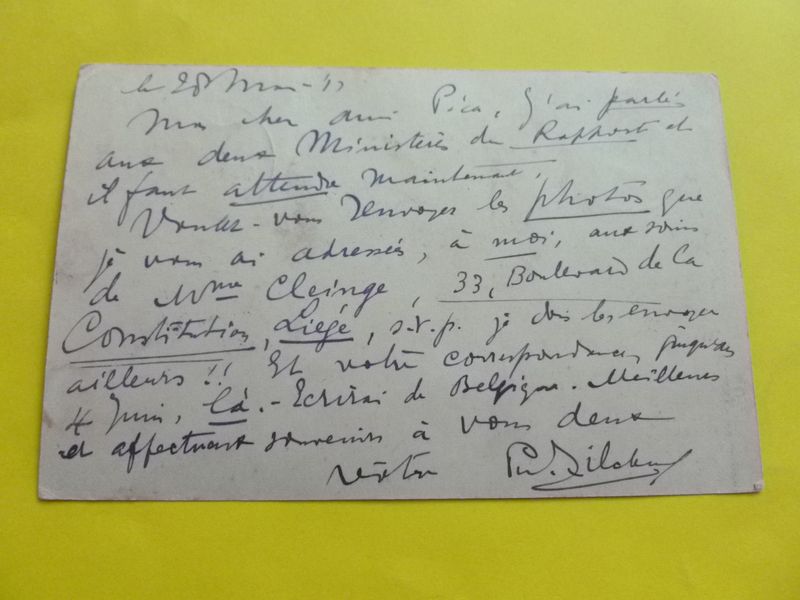 le 28 Mai - 
Mon cher ami Pica, J'ai parlé
aux deux Ministères du Rapport et
il faut attendre maintenant.
Voulez-vous renvoyer les photos que
je vous ai adressées, à moi, aux soins
de Mme Cleinge, 33, Boulevard de La
Constitution, Liége, s.v.p. je dois les envoyer
ailleurs !! Et votre correspondance, jusqu'au
4 Juin, là. - Ecrirai de Belgique. Meilleurs
et affectueux souvenirs à vous deux
votre